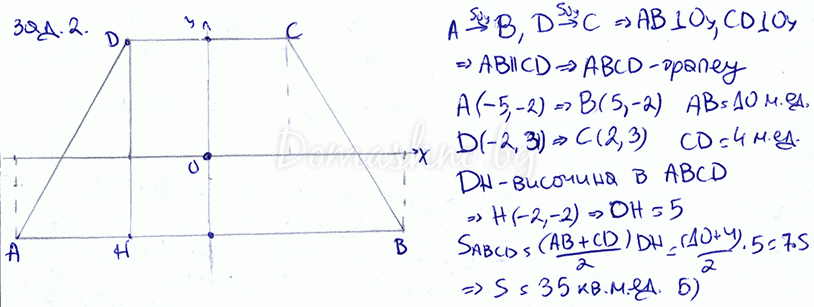 Зад. 2.
D
y
C
O
x
A
H
B
A →Sоу B, D →Sоу C ⇒ AB⊥Oy, CD⊥Oy
⇒ AB∥CD ⇒ ABCD - трапец
A(-5,-2) ⇒ B(5,-2) AB=10 м.ед.
D(-2,3) ⇒ C(2,3) CD=4 м.ед.
DH - височина в ABCD
⇒ H(-2,-2) ⇒ DH=5
S_ABCD = (AB+CD)/2 DH = (10+4)/2 . 5 = 7.5
⇒ S = 35 кв.м.ед. Б)
Domashno.bg